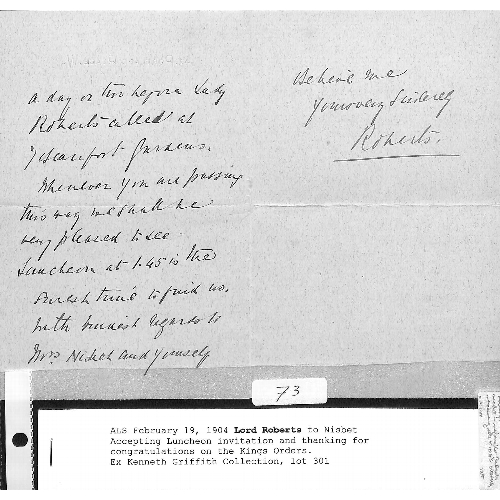 a day or two before Lady
Roberts called at
7 Beaufort Gardens.
Whenever you are passing
this way we shall be
very pleased to see
Luncheon at 1.45 is the
surest time to find us.
With kindest regards to
Mrs Nisbet and yourself
Believe me
Yours very Sincerely
Roberts.
73
ALS February 19, 1904 Lord Roberts to Nisbet
Accepting Luncheon invitation and thanking for
congratulations on the Kings Orders.
Ex Kenneth Griffith Collection, lot 301